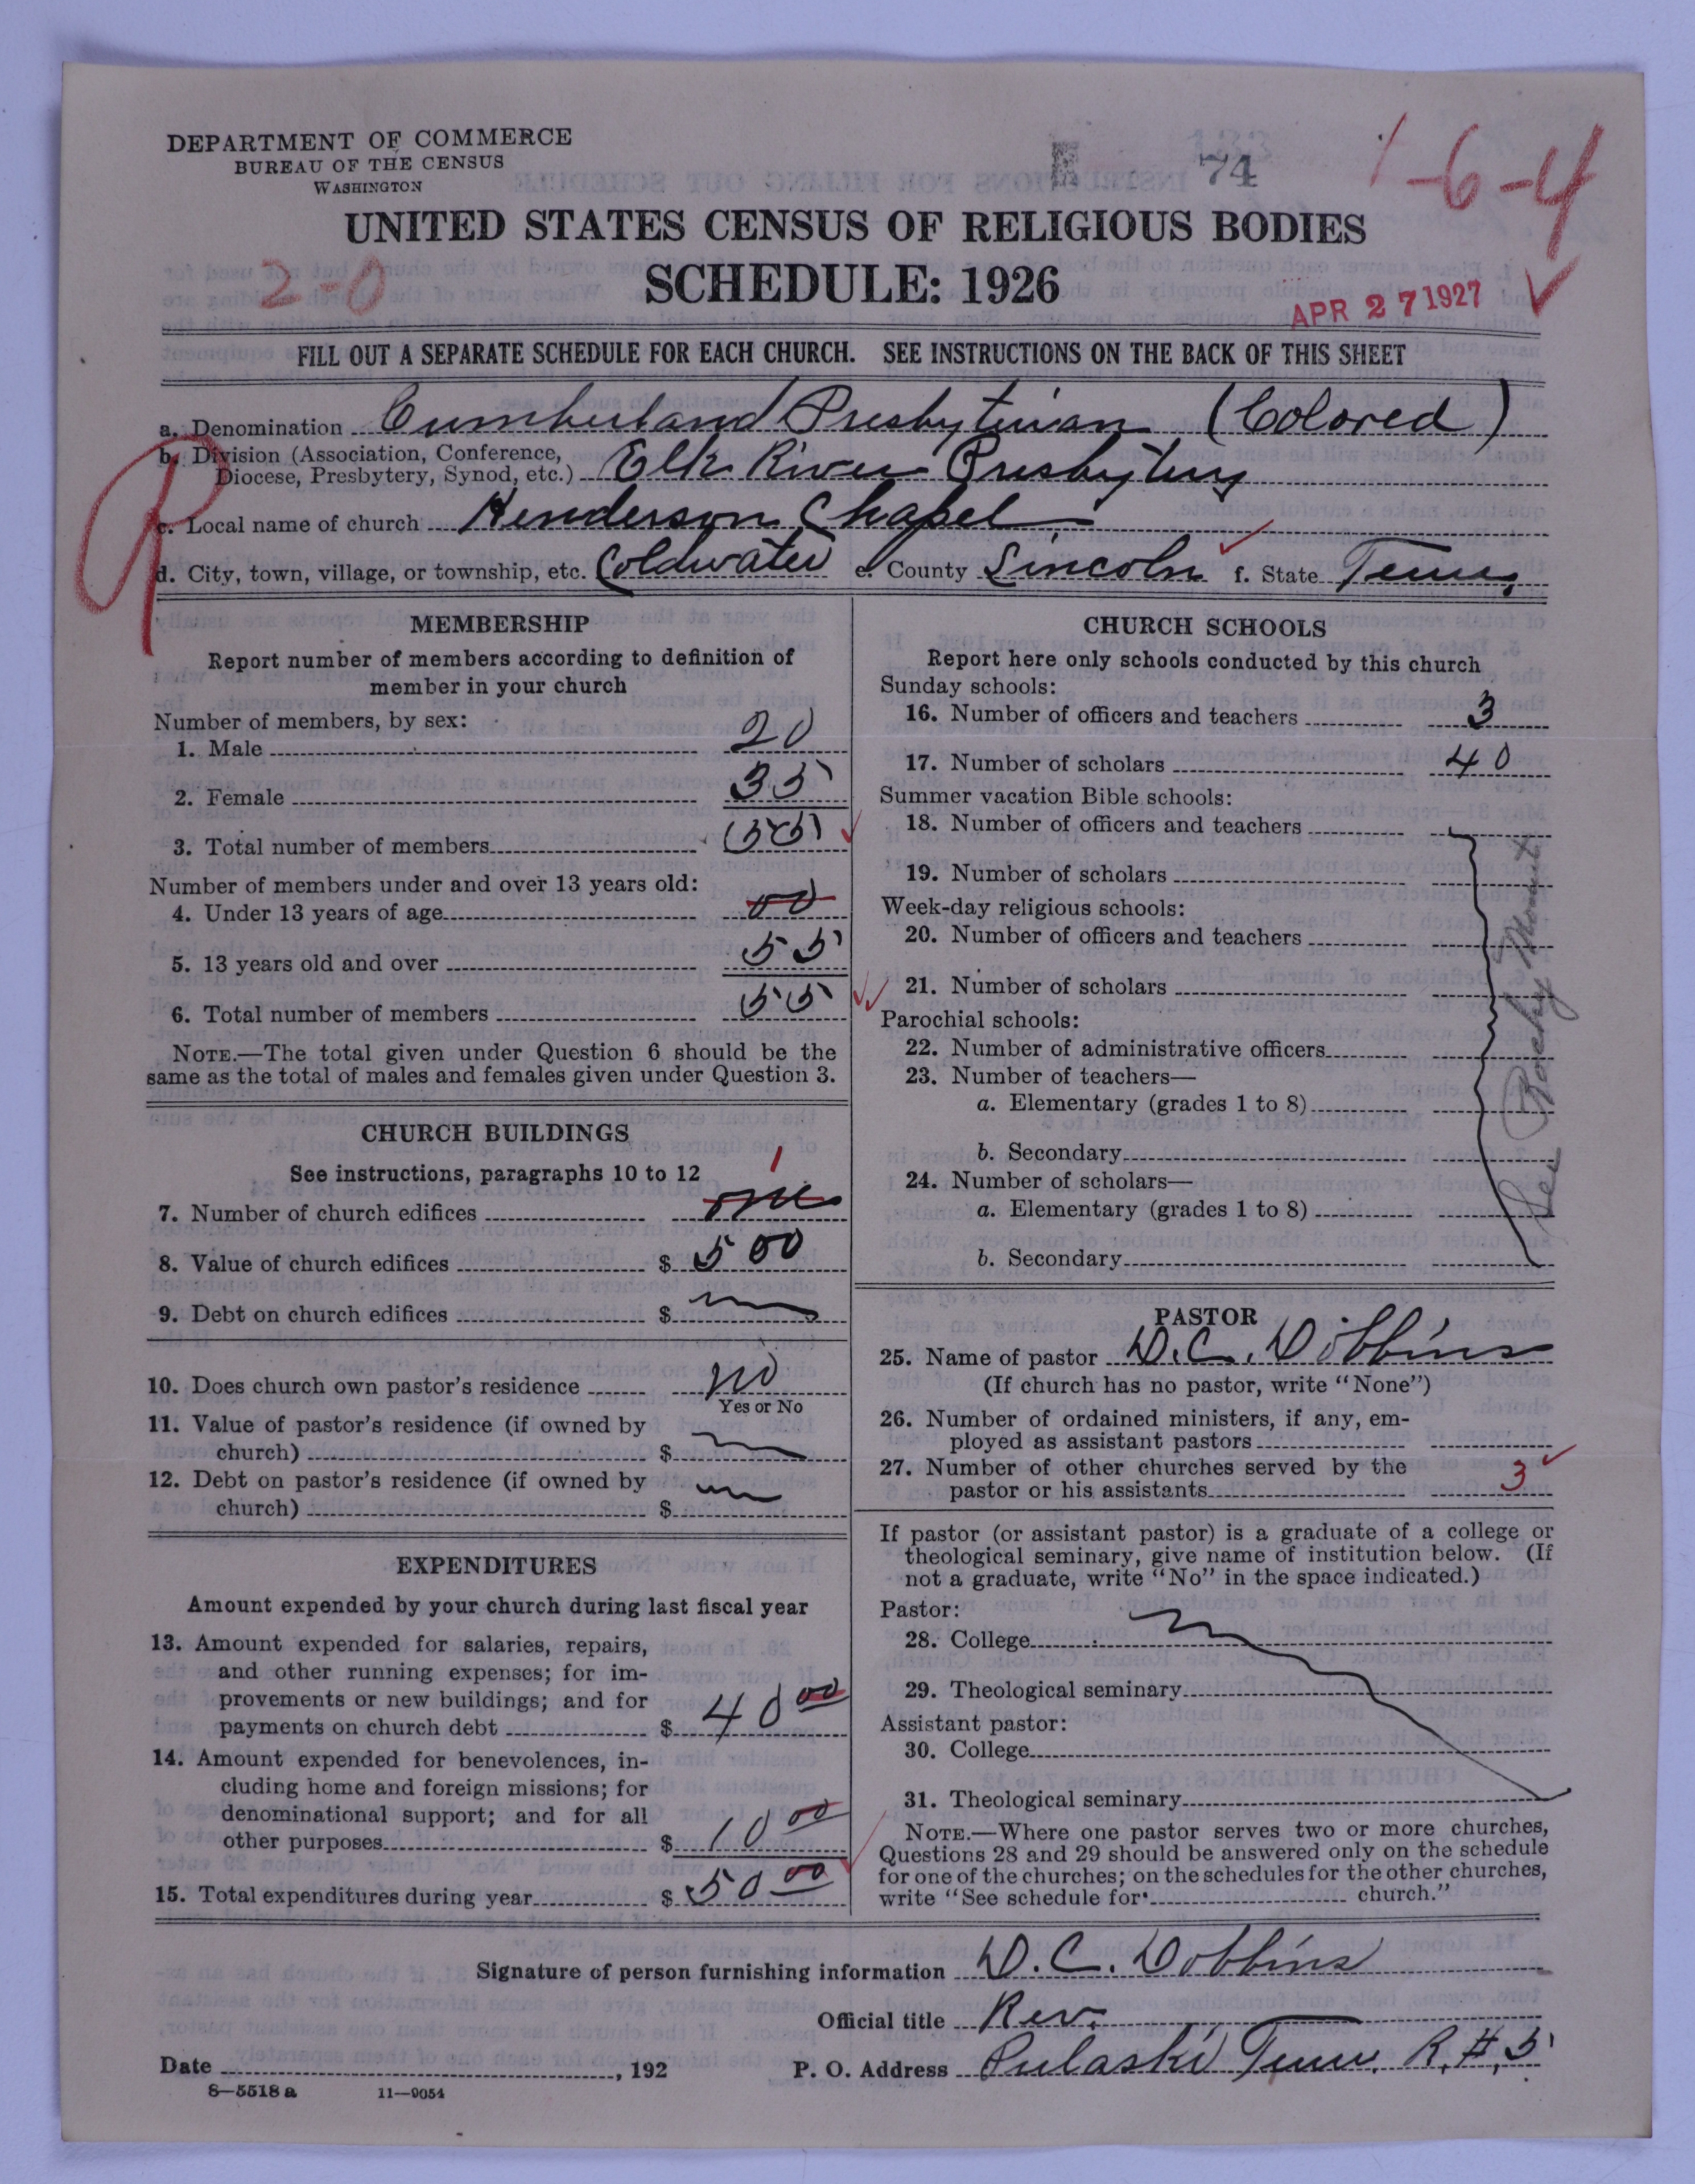 DEPARTMENT OF COMMERCE
BUREAU OF THE CENSUS
WASHINGTON
E 74
1-6-4
UNITED STATES CENSUS OF RELIGIOUS BODIES
2-0
SCHEDULE: 1926
APR 27 1927
FILL OUT A SEPARATE SCHEDULE FOR EACH CHURCH. SEE INSTRUCTIONS ON THE BACK OF THIS SHEET
a. Denomination Cumberland Presbyterian (Colored)
b. Division (Association, Conference,
Diocese, Presbytery, Synod, etc.) Elk River Presbytery
c. Local name of church Henderson Chapel
d. City, town, village, or township, etc. Coldwater e. County Lincoln f. State Tenn.
MEMBERSHIP
Report number of members according to definition of
member in your church
Number of members, by sex:
1. Male 20
2. Female 35
3. Total number of members 55
Number of members under and over 13 years old:
4. Under 13 years of age 00
5. 13 years old and over 55
6. Total number of members 55
NOTE.—The total given under Question 6 should be the
same as the total of males and females given under Question 3.
CHURCH BUILDINGS
See instructions, paragraphs 10 to 12
1
7. Number of church edifices one
8. Value of church edifices $ 500
9. Debt on church edifices $
10. Does church own pastor's residence no
Yes or No
11. Value of pastor's residence (if owned by
church) $
12. Debt on pastor's residence (if owned by
church) $
EXPENDITURES
Amount expended by your church during last fiscal year
13. Amount expended for salaries, repairs,
and other running expenses; for im-
provements or new buildings; and for
payments on church debt $ 40 00
14. Amount expended for benevolences, in-
cluding home and foreign missions; for
denominational support; and for all
other purposes $ 10 00
15. Total expenditures during year $ 50 00
CHURCH SCHOOLS
Report here only schools conducted by this church
Sunday schools:
16. Number of officers and teachers 3
17. Number of scholars 40
Summer vacation Bible schools:
18. Number of officers and teachers
19. Number of scholars
Week-day religious schools:
20. Number of officers and teachers
21. Number of scholars
Parochial schools:
22. Number of administrative officers
23. Number of teachers—
a. Elementary (grades 1 to 8)
b. Secondary
24. Number of scholars—
a. Elementary (grades 1 to 8)
b. Secondary
See Rocky Mount
PASTOR
25. Name of pastor D. C. Dobbins
(If church has no pastor, write "None")
26. Number of ordained ministers, if any, em-
ployed as assistant pastors
27. Number of other churches served by the
pastor or his assistants 3
If pastor (or assistant pastor) is a graduate of a college or
theological seminary, give name of institution below. (If
not a graduate, write "No" in the space indicated.)
Pastor:
28. College
29. Theological seminary
Assistant pastor:
30. College
31. Theological seminary
NOTE.—Where one pastor serves two or more churches,
Questions 28 and 29 should be answered only on the schedule
for one of the churches; on the schedules for the other churches,
write "See schedule for church."
Signature of person furnishing information D. C. Dobbins
Official title Rev.
Date , 192 P. O. Address Pulaski Tenn. R.#.5
8—5518 a 11—9054